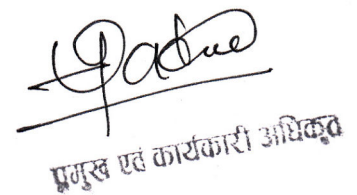 प्रमुख एवं कार्यकारी अधिकृत